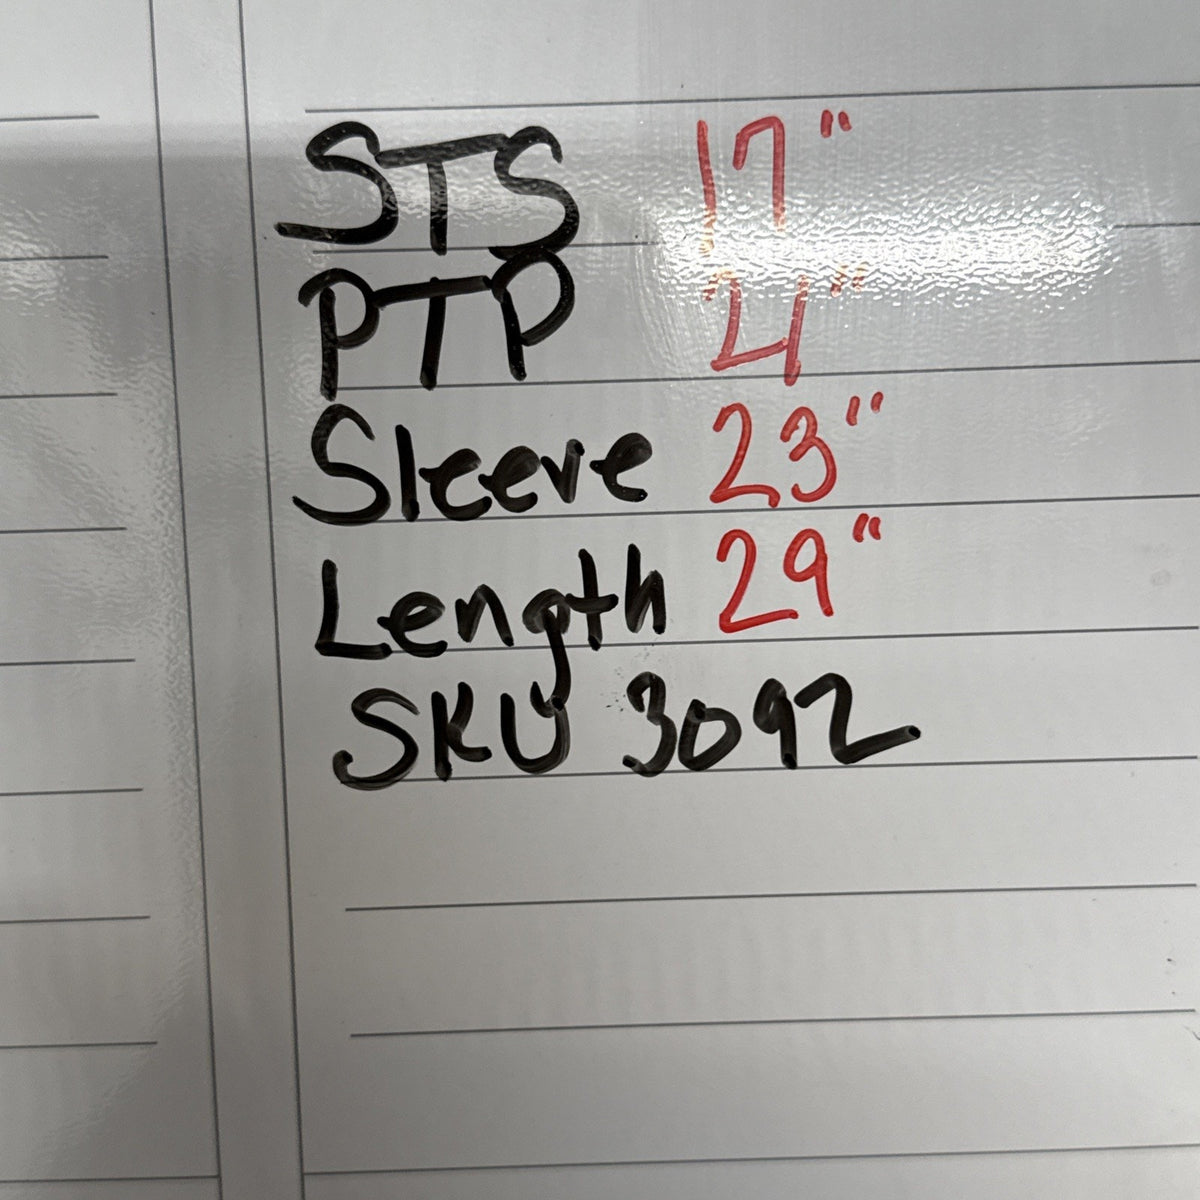 STS 17"
PTP 21"
Sleeve 23"
Length 29"
SKU 3092